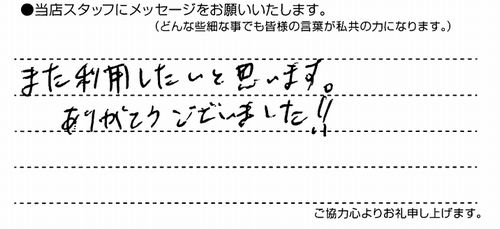 ●当店スタッフにメッセージをお願いいたします。
(どんな些細な事でも皆様の言葉が私共の力になります。)
また利用したいと思います。
ありがとうございました!!
ご協力心よりお礼申し上げます。